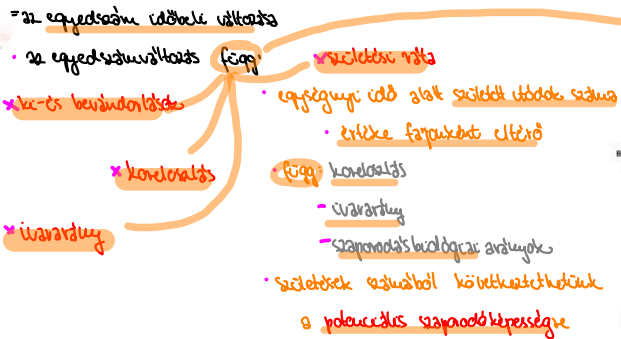 = az egyedszám időbeli változása
• az egyedszámváltozás függ:
× ki-és bevándorlások
× koreloszlás
× ivararány
× születési ráta
• egységnyi idő alatt született utódok száma
• értéke fajonként eltérő
• függ: koreloszlás
- ivararány
- szaporodásbiológiai arányok
• születések számából következtethetünk
a potenciális szaporodóképességre